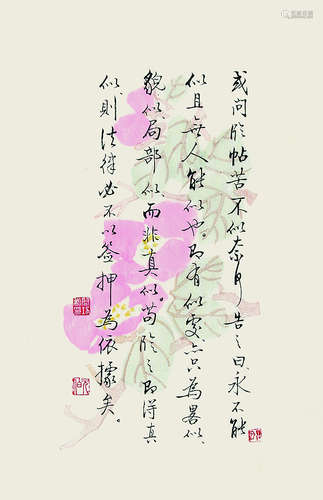 或问临帖苦不似奈何告之曰永不能
似且无人能似也。即有似处亦只為畧似、
貌似、局部似而非真似。苟临之即得真
似则法律必不以签押為依據矣。